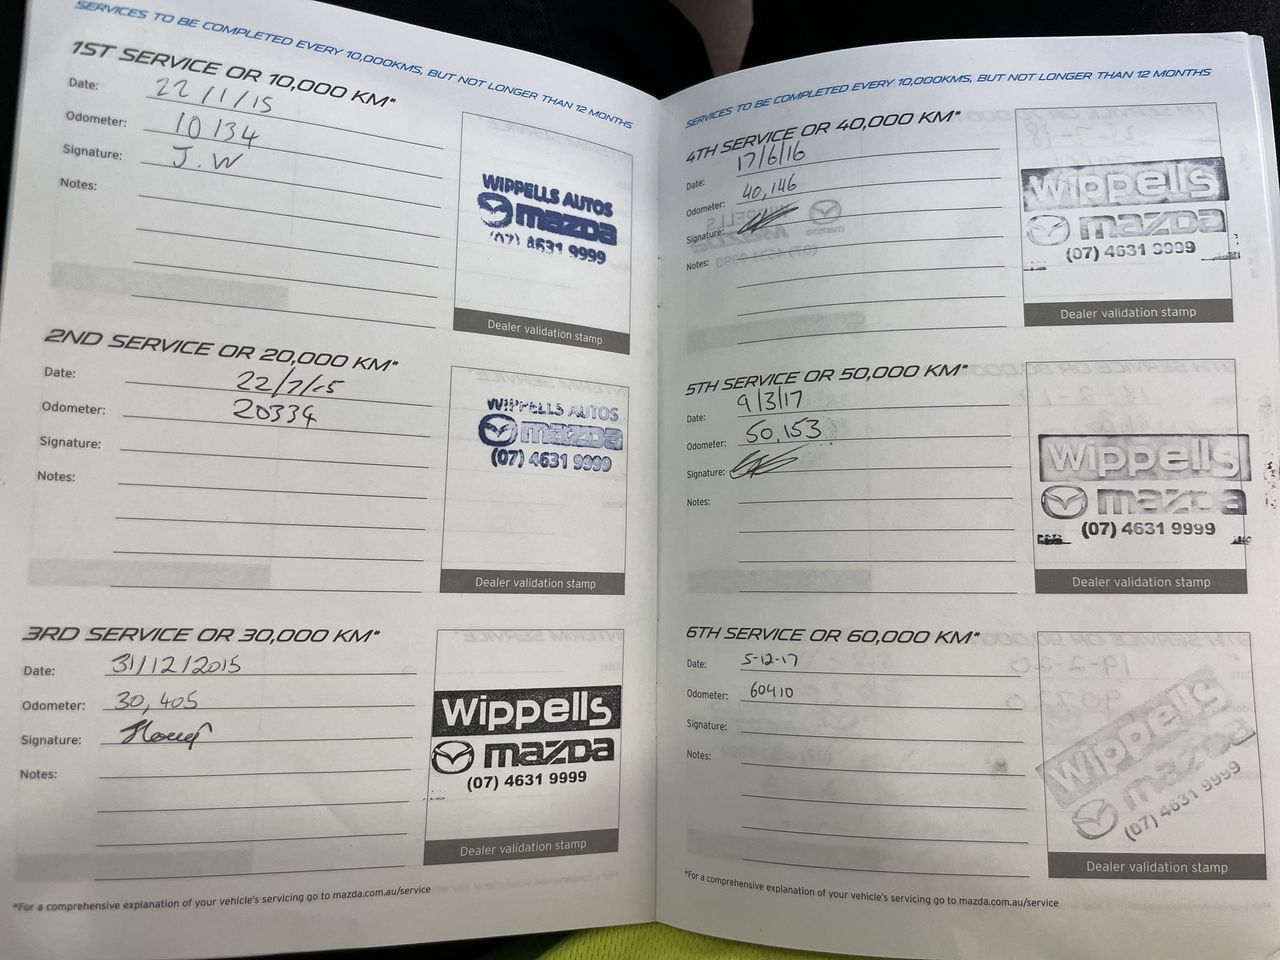 SERVICES TO BE COMPLETED EVERY 10,000KMS, BUT NOT LONGER THAN 12 MONTHS
1ST SERVICE OR 10,000 KM*
Date: 22/1/15
Odometer: 10134
Signature: J.W
Notes:
WIPPELLS AUTOS
mazda
(07) 4631 9999
Dealer validation stamp
2ND SERVICE OR 20,000 KM*
Date: 22/7/15
Odometer: 20334
Signature:
Notes:
WIPPELLS AUTOS
mazda
(07) 4631 9999
Dealer validation stamp
3RD SERVICE OR 30,000 KM*
Date: 31/12/2015
Odometer: 30,405
Signature:
Notes:
Wippells
mazda
(07) 4631 9999
Dealer validation stamp
*For a comprehensive explanation of your vehicle's servicing go to mazda.com.au/service
SERVICES TO BE COMPLETED EVERY 10,000KMS, BUT NOT LONGER THAN 12 MONTHS
4TH SERVICE OR 40,000 KM*
Date: 17/6/16
Odometer: 40,146
Signature:
Notes:
Wippells
mazda
(07) 4631 9999
Dealer validation stamp
5TH SERVICE OR 50,000 KM*
Date: 9/3/17
Odometer: 50,153
Signature:
Notes:
Wippells
mazda
(07) 4631 9999
Dealer validation stamp
6TH SERVICE OR 60,000 KM*
Date: 5-12-17
Odometer: 60410
Signature:
Notes:
Wippells
mazda
(07) 4631 9999
Dealer validation stamp
*For a comprehensive explanation of your vehicle's servicing go to mazda.com.au/service